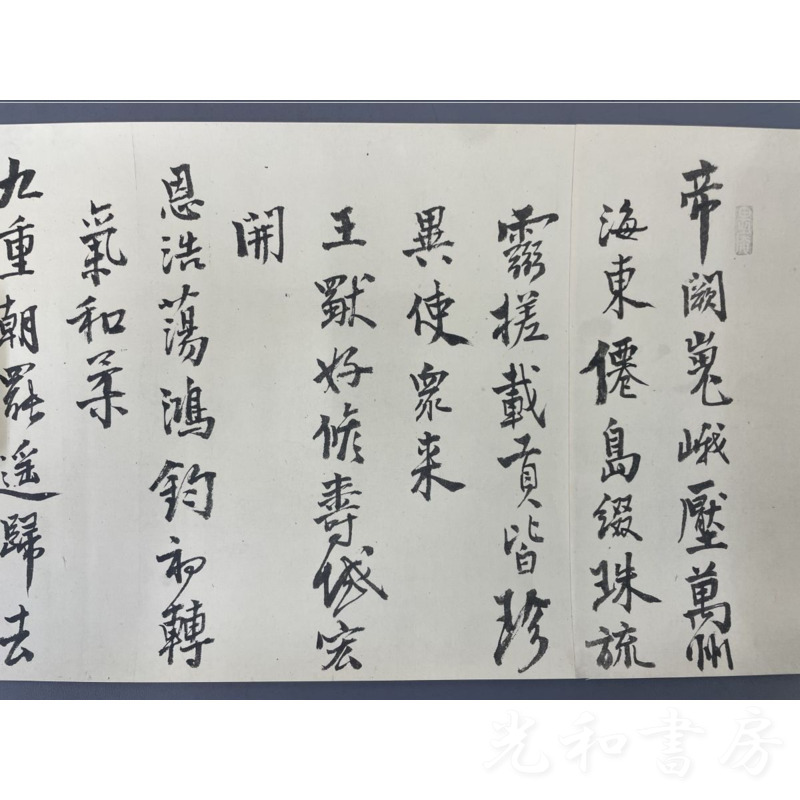 帝闕嵬峨壓萬州
海東僊島綴珠旒
靈槎載貢皆珍
異使衆来
王猷好脩壽域宏
開
恩浩蕩鴻鈞初轉
氣和柔
九重朝罷遥歸去
光和書房